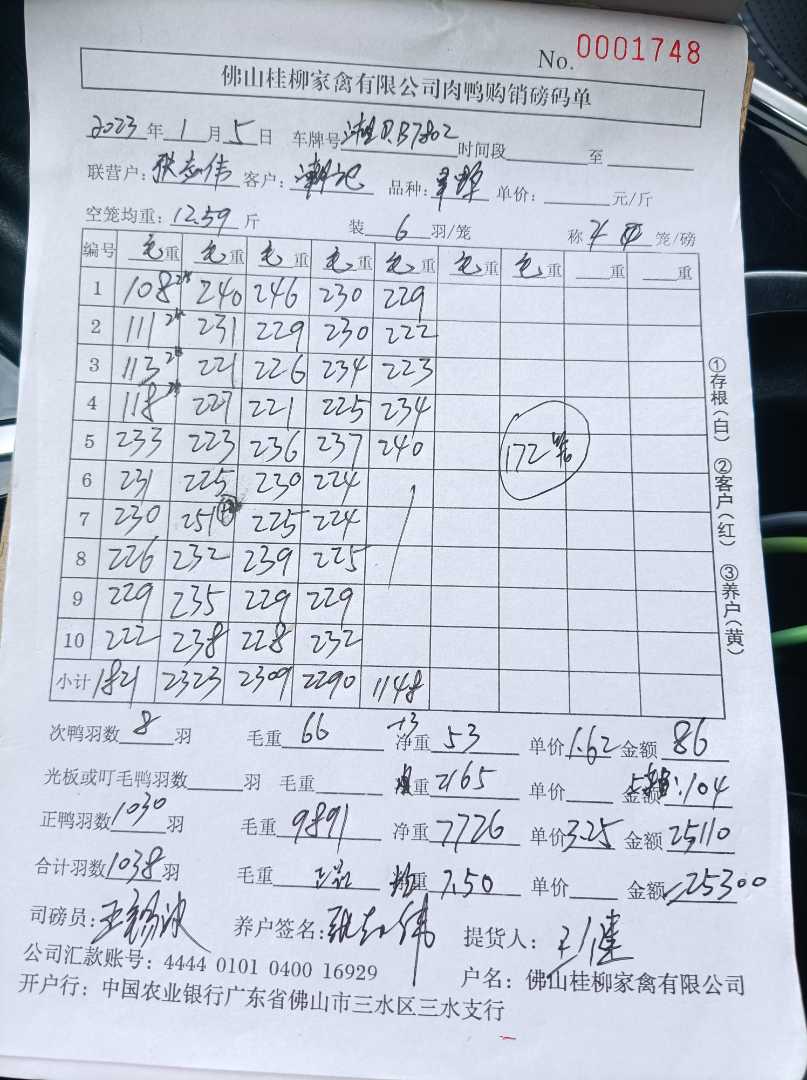 No. 0001748
佛山桂柳家禽有限公司肉鸭购销磅码单
2023年1月5日 车牌号 时间段 至
联营户: 张志伟 客户: 潮记 品种: 单价: 元/斤
空笼均重: 12.59 斤 装 6 羽/笼 称 4 笼/磅
编号 毛重 毛重 毛重 毛重 毛重 毛重 毛重 重 重
1 108 240 246 230 229
2 111 231 229 230 222
3 113 221 226 234 223
4 118 227 221 225 234
5 233 223 236 237 240 172笼
6 231 225 230 224
7 230 251 225 224
8 226 232 239 225
9 229 235 229 229
10 222 238 228 232
小计 1821 2323 2309 2290 1148
次鸭羽数 8 羽 毛重 66 -13 净重 53 单价 1.62 金额 86
光板或叮毛鸭羽数 羽 毛重 重 2165 单价 金额 104
正鸭羽数 1030 羽 毛重 9891 净重 7726 单价 3.25 金额 25110
合计羽数 1038 羽 毛重 重 7.50 单价 金额 25300
司磅员: 养户签名: 张志伟 提货人:
公司汇款账号: 4444 0101 0400 16929 户名: 佛山桂柳家禽有限公司
开户行: 中国农业银行广东省佛山市三水区三水支行
①存根(白) ②客户(红) ③养户(黄)